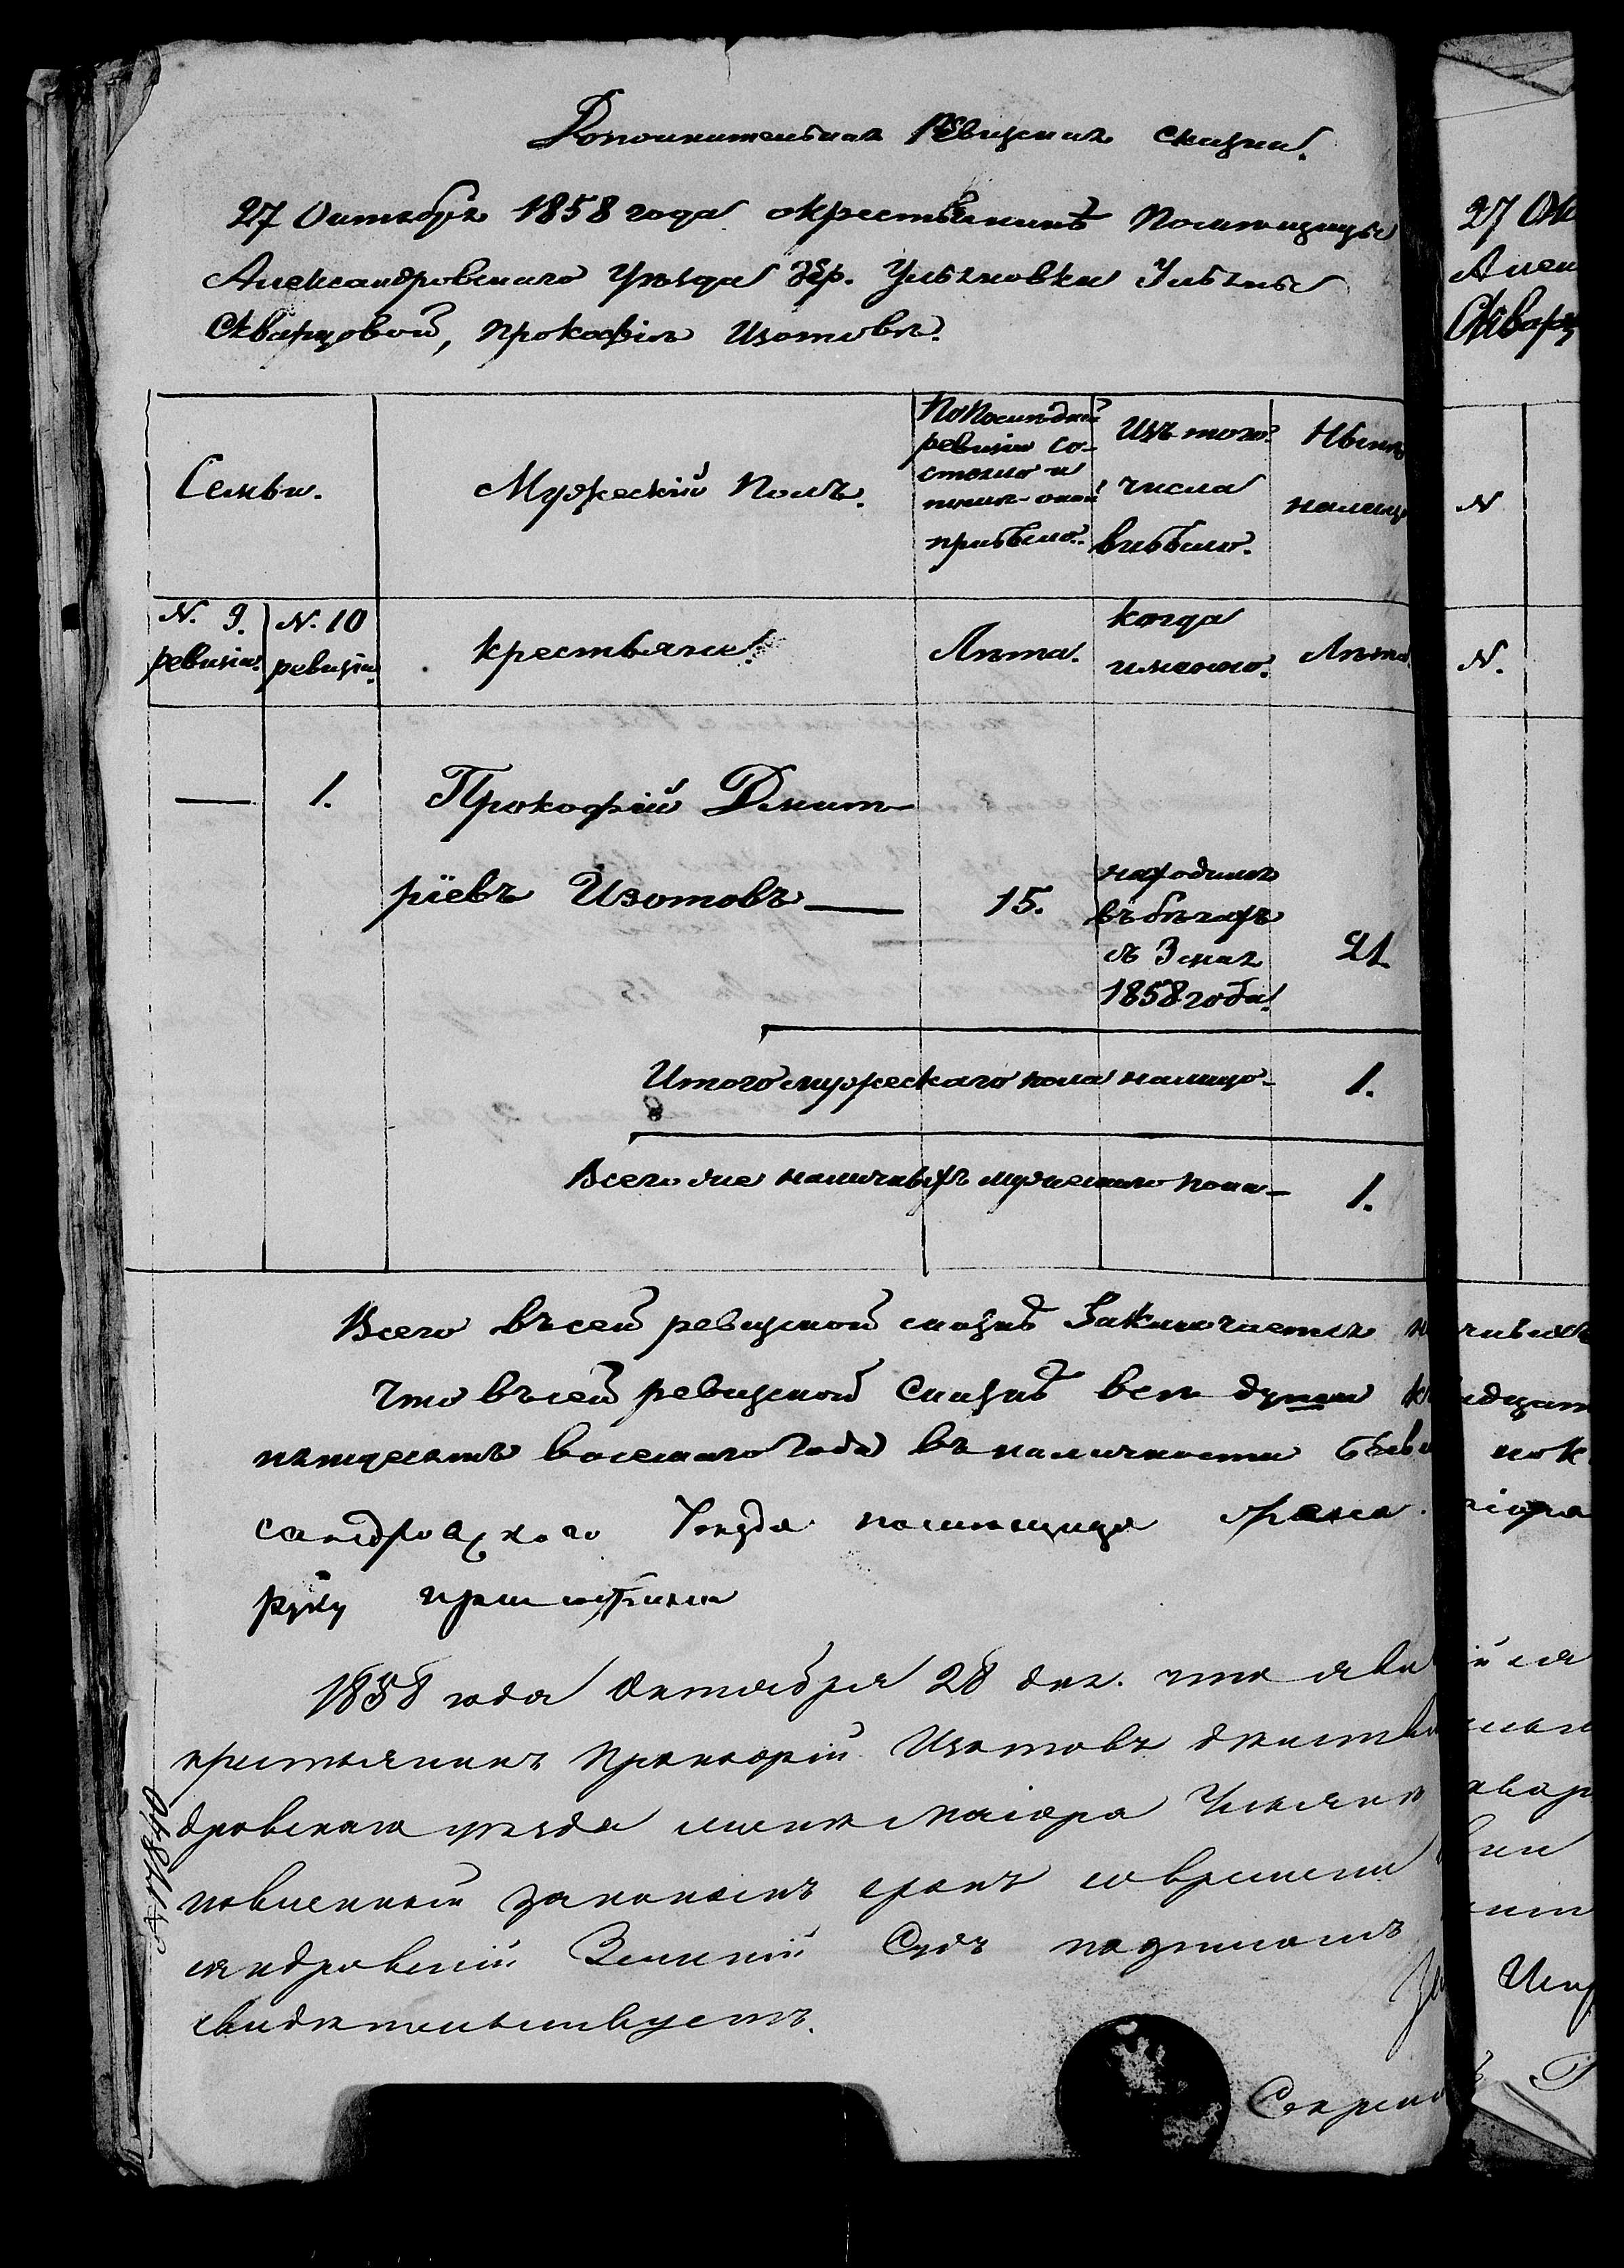 Дополнительная Ревизская сказка.
27 Октября 1858 года о крестьянинѣ Помѣщицы
Александровскаго Уѣзда дер. Ульяновки Ульяны
Скварцовой, Прокофія Изотовѣ.
Семьи.
Мужескій Полъ.
По Последней
ревизіи со-
стояло и
послѣ оной
прибыло.
Изъ того
числа
выбыло.
Нынѣ
налицо
N. 9.
ревизіи.
N. 10
ревизіи.
Крестьяне.
Лѣта.
когда
именно.
Лѣта
—
1.
Прокофій Дмит-
ріевъ Изотовъ —
15.
находился
въ бѣгахъ
съ 3 мая
1858 года.
21
Итого мужескаго пола налицо - 1.
Всего же наличныхъ мужескаго пола - 1.
Всего въ сей ревизской сказкѣ Заключается
Что въ сей ревизской Сказкѣ всѣ души
пятдесятъ восемаго Года въ наличности
сандровского Уезда помѣщица
руку приложила
1858 года Октября 28 дня. что яви
крестьянинъ Прокофій Изотовъ
дровскаго уѣзда маіора Ульян
новленный закономъ срокъ со времени
сандровскій Земскій Судъ подписомъ
свидѣтельствуетъ.
Секрет
27 Ок
Алек
Сквар
N
N.